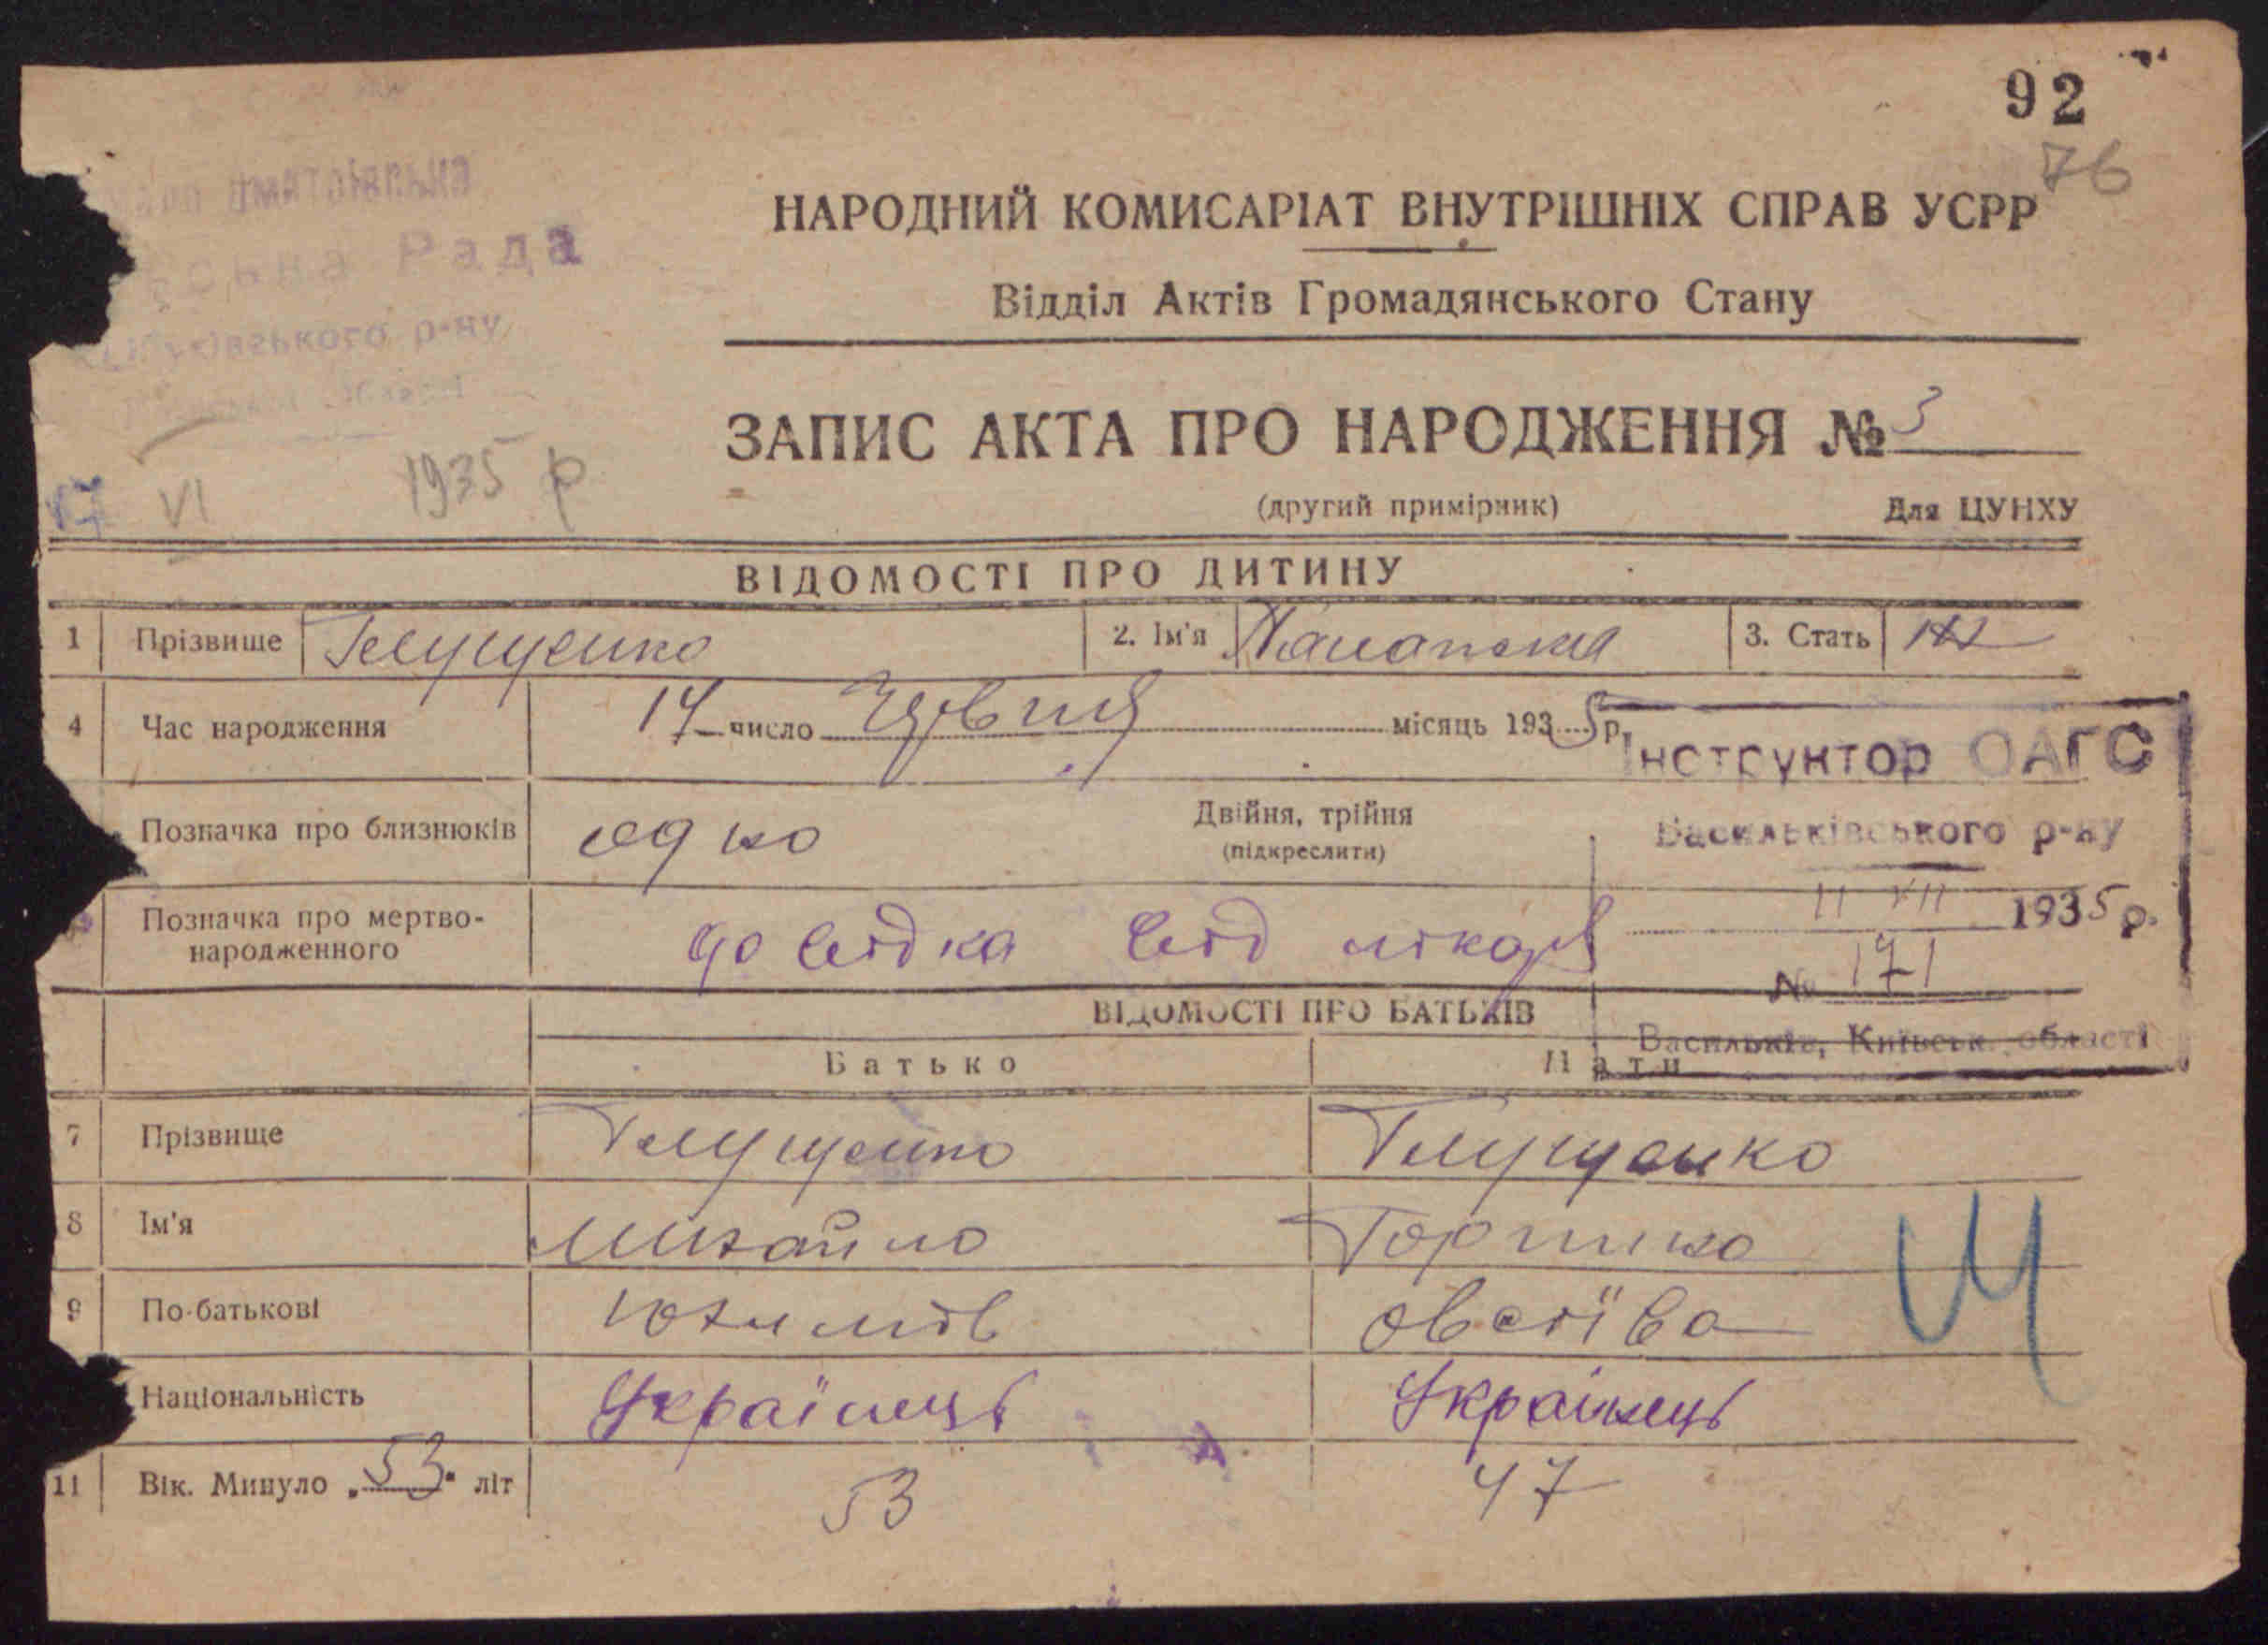 92
76
Рада
р-ну
НАРОДНИЙ КОМИСАРІАТ ВНУТРІШНІХ СПРАВ УСРР
Відділ Актів Громадянського Стану
ЗАПИС АКТА ПРО НАРОДЖЕННЯ № 3
17 VI 1935 р
(другий примірник) Для ЦУНХУ
ВІДОМОСТІ ПРО ДИТИНУ
1 Прізвище Глущенко 2. Ім'я 3. Стать
4 Час народження 14 число Червня місяць 1935 р.
Інструктор ОАГС
Позначка про близнюків одно Двійня, трійня
(підкреслити)
Васильківського р-ну
Позначка про мертво-
народженного
довідка від лікаря
11 XII 1935 р.
№ 171
Васильків, Київськ. області
ВІДОМОСТІ ПРО БАТЬКІВ
Батько Мати
7 Прізвище Глущенко Глущенко
8 Ім'я Михайло Горпина
9 По-батькові Юхимів Овсіїва
Національність Українець Українець
11 Вік. Минуло „53" літ 53 47